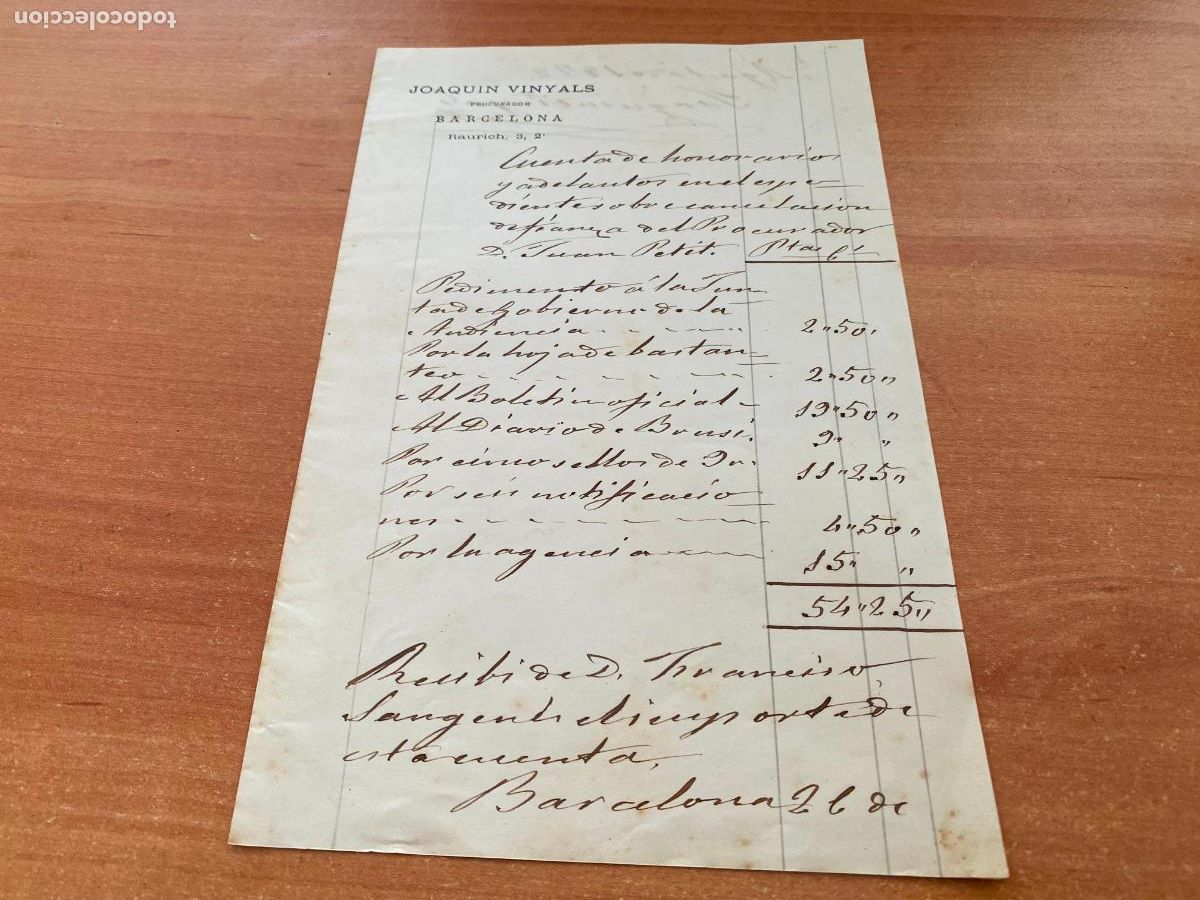 todocoleccion
JOAQUIN VINYALS
PROCURADOR
BARCELONA
Raurich, 3, 2º
Cuenta de honorarios
y adelantos en el espe-
diente sobre cancelacion
de fianza del Procurador
D. Juan Petit. Ptas Cs
Pedimento á la Jun-
ta de Gobierno de la
Audiencia 2"50"
Por la hoja de bastan-
teo 2"50"
Al Boletin oficial 19"50"
Al Diario de Brusi. 9" "
Por cinco sellos de 11"25"
Por seis notificacio-
nes 4"50"
Por la agencia 15" "
54"25"
Recibi de D. Francisco
Sangenís el importe de
esta cuenta.
Barcelona 26 de